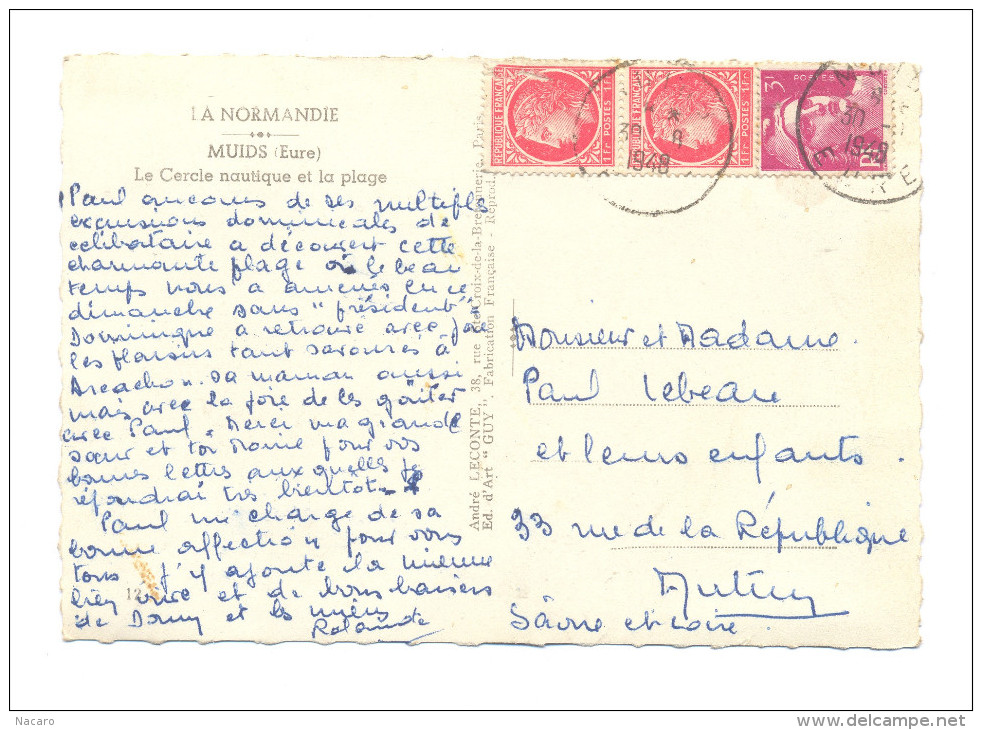 LA NORMANDIE
MUIDS (Eure)
Le Cercle nautique et la plage
Paul au cours de ses multiples
excursions dominicales de
célibataire a découvert cette
charmante plage où le beau
temps nous a amenés en ce
dimanche sans "président"
Dominique a retrouvé avec joie
les plaisirs tant savourés à
Arcachon. sa maman aussi
mais avec la joie de les goûter
avec Paul. Merci ma grande
sœur et toi Mamie pour vos
bonnes lettres auxquelles je
répondrai très bientôt.
Paul me charge de sa
bonne affection pour vous
tous j'y ajoute la mienne
bien vive et de bons baisers
de Domy et les miens
Rolande
12
André LECONTE, 38, rue Ste-Croix-de-la-Bretonnerie, Paris
Ed. d'Art "GUY". Fabrication Française - Reprod
REPUBLIQUE FRANÇAISE
1Fr POSTES 1Fr
REPUBLIQUE FRANÇAISE
1Fr POSTES 1Fr
3F POSTES
30 8
1948
MUIDS
30 8
1948
EURE
Monsieur et Madame.
Paul Lebeau
et leurs enfants.
33 rue de la République
Autun
Saône et Loire.
Nacaro
delcampe.net